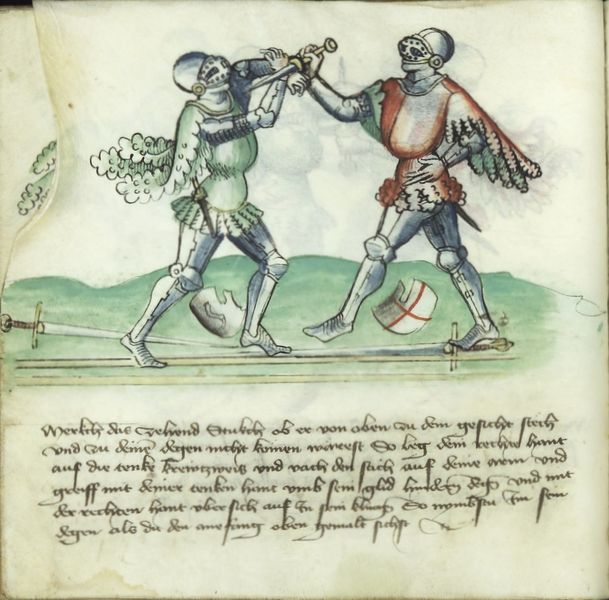 Merckh das Zehend Stuckh ob er von oben zu dem gesicht stech
und zu deinem degen nicht komen wärest So leg dein rechte hant
auf die tenke kreutzweis und vach den stich auf deine arm und
greiff mit deiner tenken hant umb sein glid hinden degen und mit
der rechten hant uber sich auf In sein kling So nymbstu Im sein
degen als du den anefang oben gemalt sichst